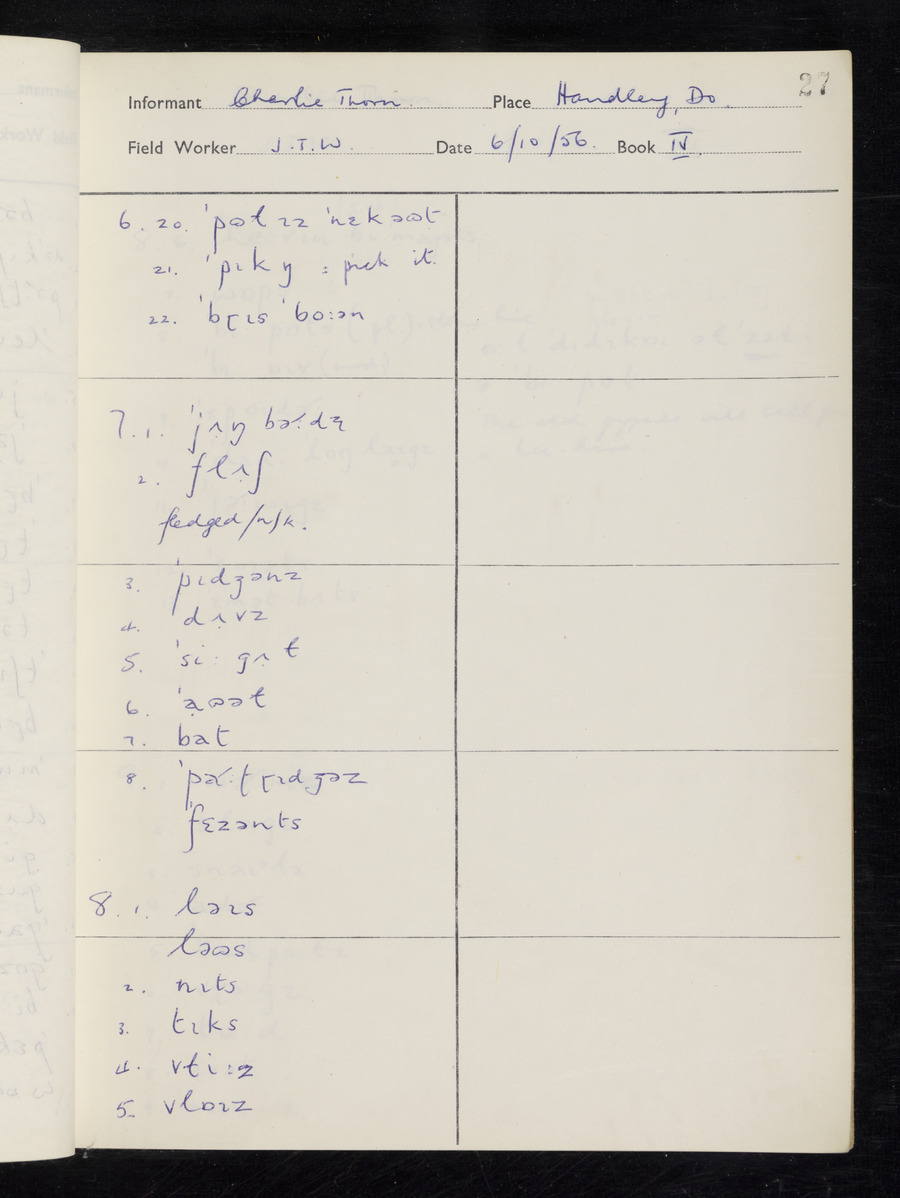 27
Informant Charlie Thorn Place Handley, Do.
Field Worker J.T.W. Date 6/10/56. Book IV.
6. 20. ˈpɷt ɪz ˈnɛk əɷt
21. ˈpɪk ŋ : pick it.
22. ˈbɽɪs ˈbo:ən
7. 1. ˈjʌŋ bə˞:dz̩
2. flʌʃ
fledged/n/k.
3. ˈpɪdʒənz
4. dʌvz
5. ˈsi: gʌt
6. ˈaɷət
7. bat
8. ˈpə˞:tɽɪdʒəz
ˈfɛzənts
8. 1. ləɪs
ləɷs
2. nɪts
3. tɪks
4. vti:z
5. vlɒɪz